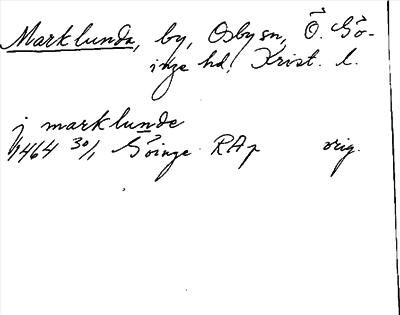 Marklunda, by, Osby sn, Ö. Gö-
inge hd, Krist. l.
j marklunde
1464 30/1 Göinge RAp orig.